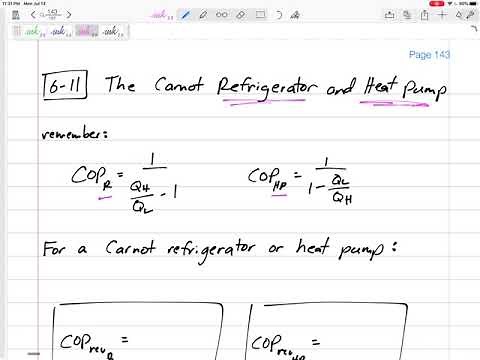 11:31 PM Mon Jul 13
90%
143
Page 143
6-11 The Carnot Refrigerator and Heat Pump
remember:
COP_R = 1 / (Q_H/Q_L - 1) COP_HP = 1 / (1 - Q_L/Q_H)
For a Carnot refrigerator or heat pump:
COP_rev_R = COP_rev_HP =